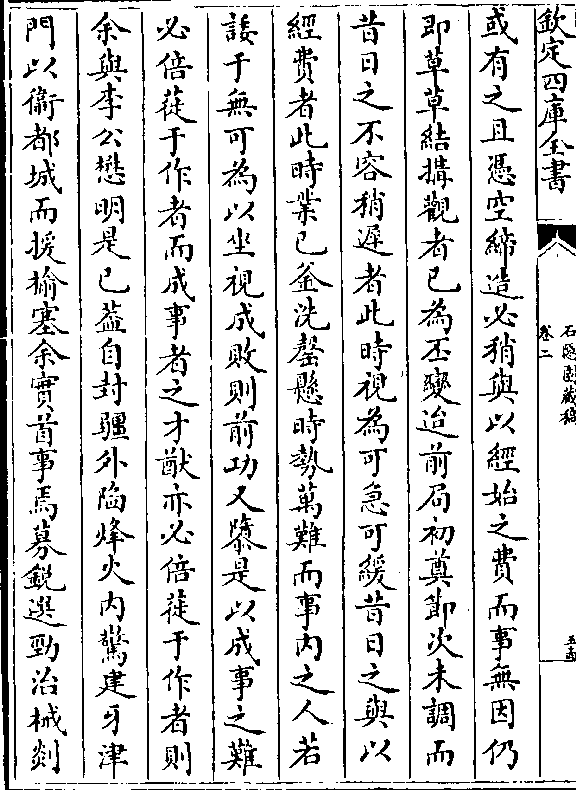 欽定四庫全書
石隱園藏稿
卷二
五十四
或有之且憑空締造必稍與以經始之費而事無因仍
即草草結搆觀者已為丕變迨前局初奠節次未調而
昔日之不容稍遲者此時視為可急可緩昔日之與以
經費者此時業已釜洗罄懸時勢萬難而事内之人若
諉于無可為以坐視成敗則前功又隳是以成事之難
必倍蓰于作者而成事者之才猷亦必倍蓰于作者則
余與李公懋明是已葢自封疆外陷烽火内驚建牙津
門以衞都城而援榆塞余實首事焉募銳選勁治械剡